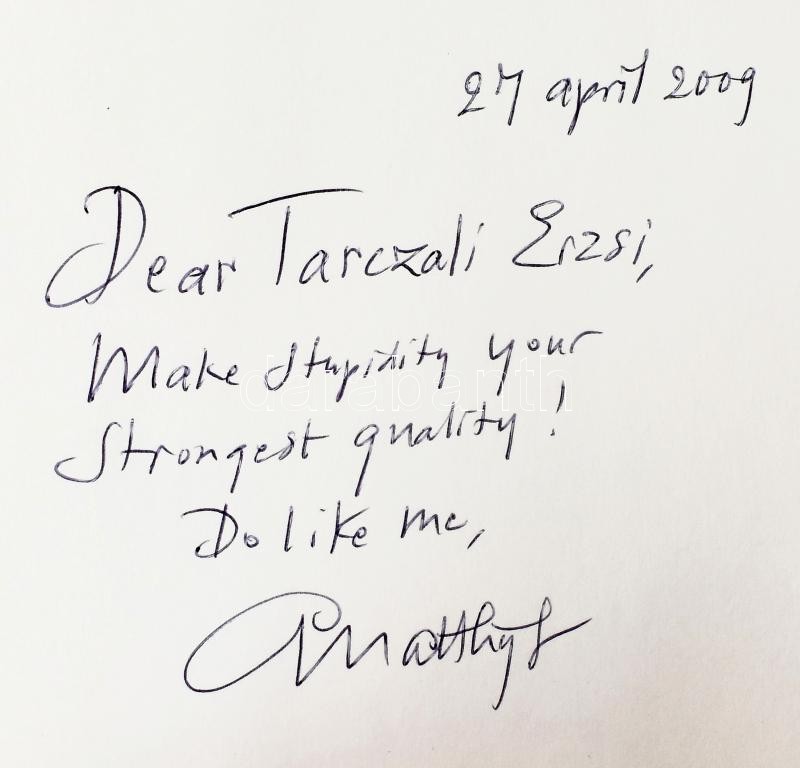 27 april 2009
Dear Tarczali Erzsi,
Make stupidity your
strongest quality!
Do like me,
Matthijs
darabanth